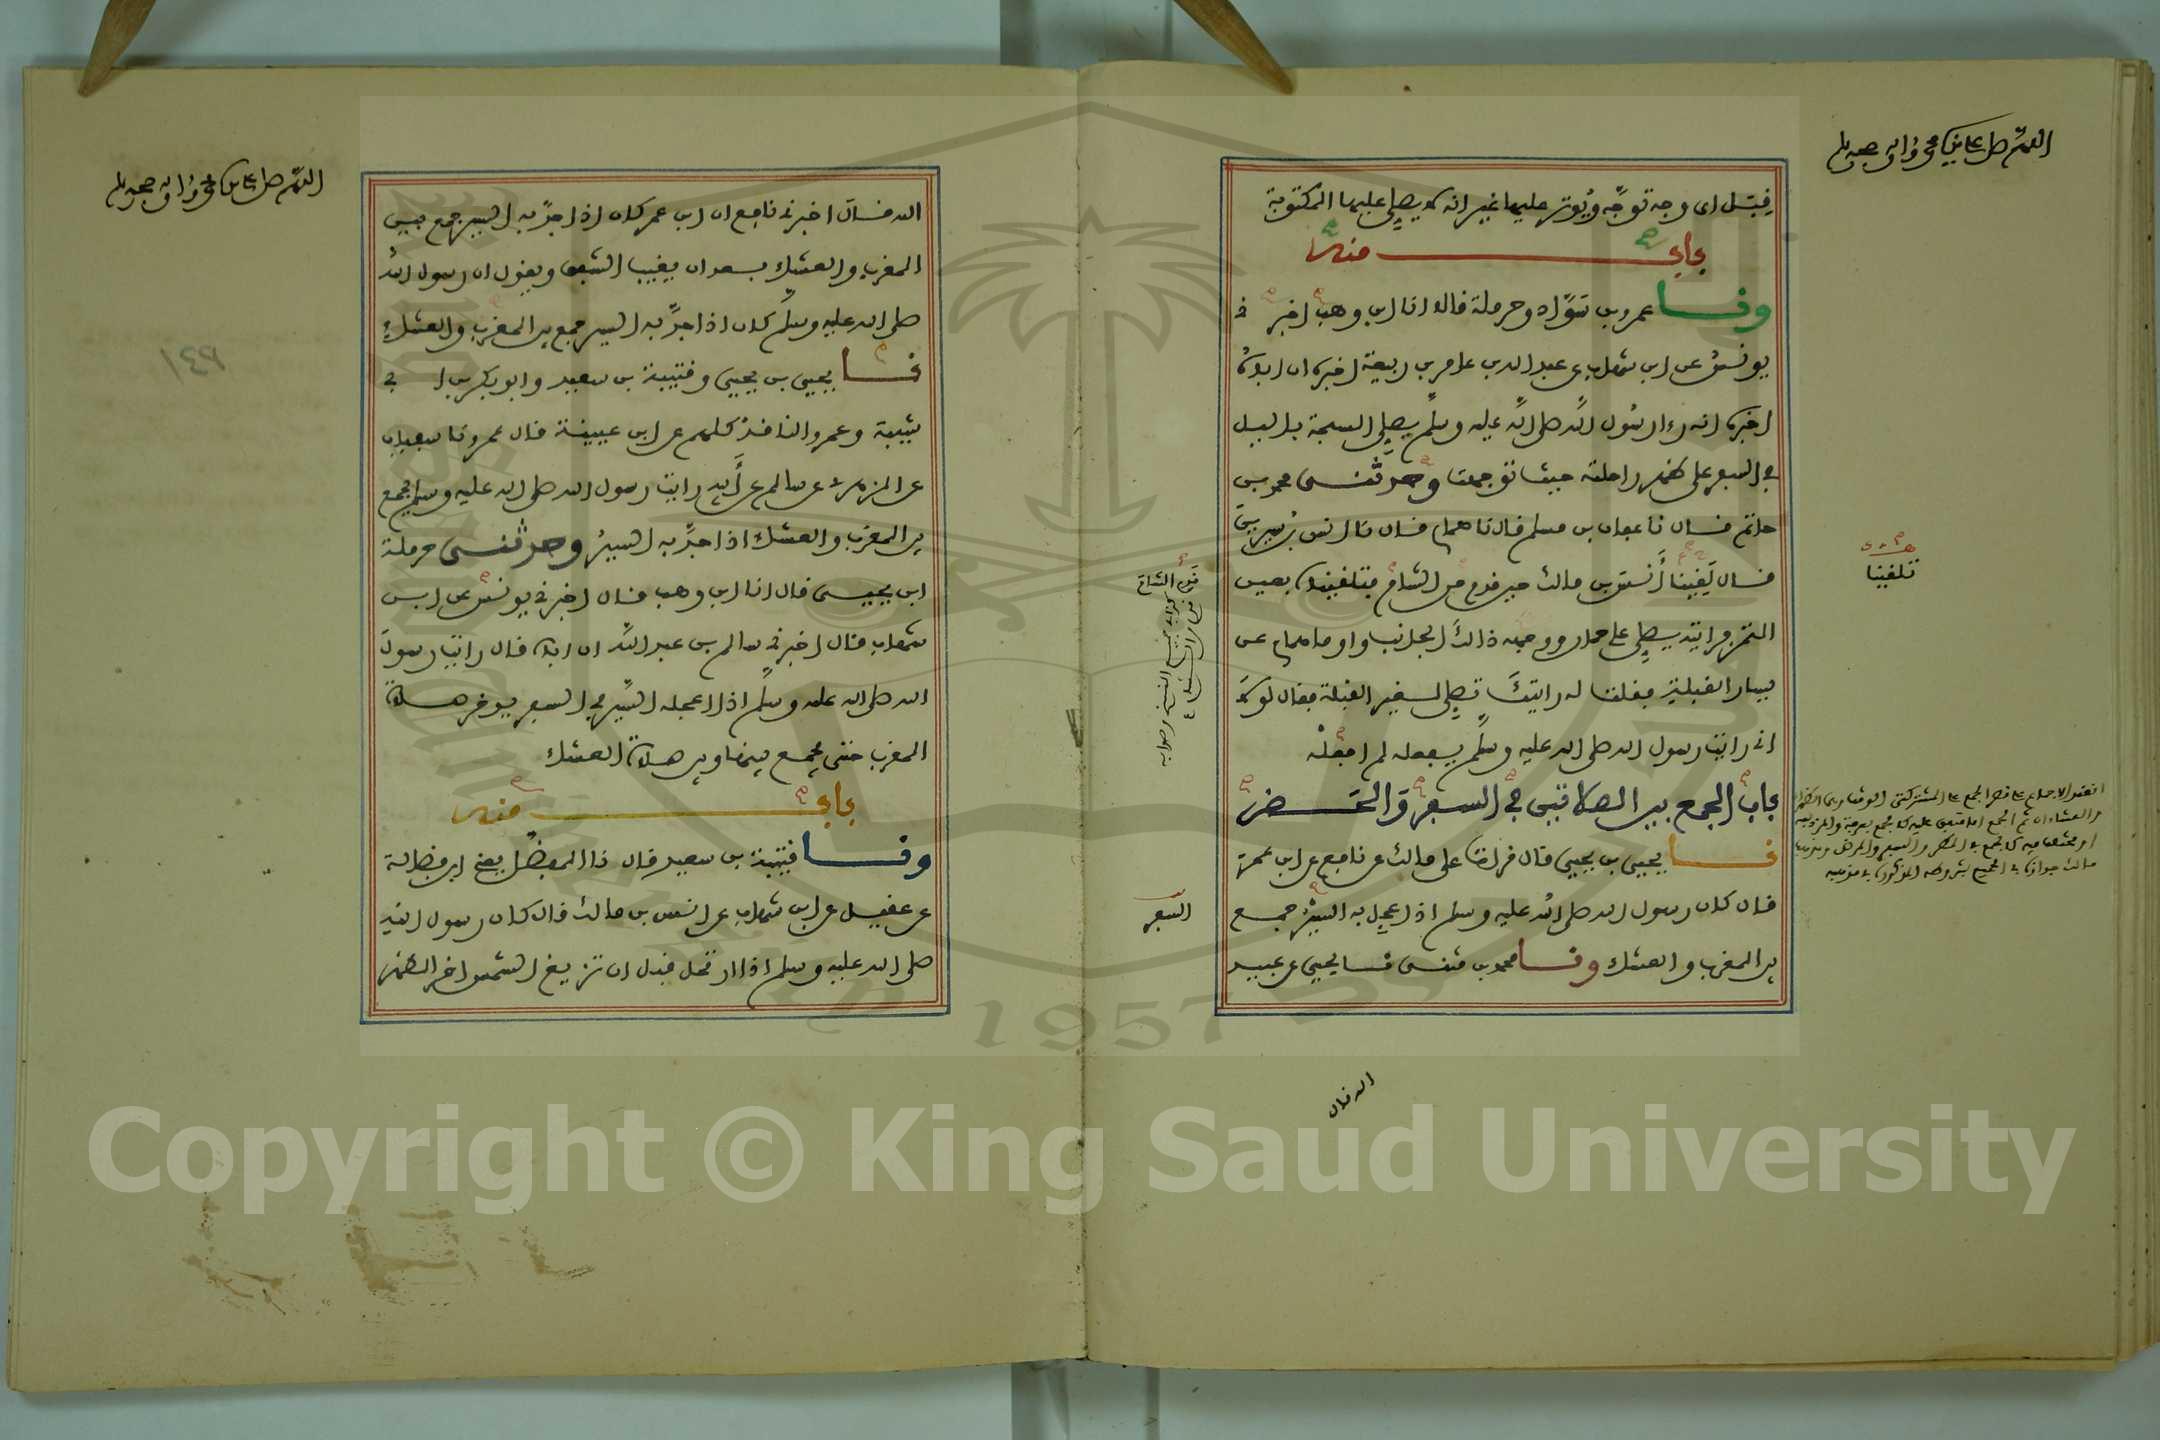 اللهم صل على نبينا محمد وءاله وصحبه وسلم
قبل اي وجه توجه ويوتر عليها غير انه لا يصلي عليها المكتوبة
باب منه
ونا عمرو بن سواد وحرملة قالا انا ابن وهب اخبرني
يونس عن ابن شهاب عن عبد الله بن عامر بن ربيعة اخبره ان اباه
اخبره انه راى رسول الله صلى الله عليه وسلم يصلي السبحة بالليل
في السفر على ظهر راحلته حيث توجهت وحدثني محمد بن
حاتم قال نا عفان بن مسلم قال نا همام قال نا انس بن سيرين
قال لقينا أنس بن مالك حين قدم من الشام فتلقيناه بعين
التمر فرايته يصلي على حمار ووجهه ذلك الجانب واوما همام عن
يسار القبلة فقلت له رايتك تصلي لغير القبلة فقال لولا
اني رايت رسول الله صلى الله عليه وسلم يفعله لم افعله
باب الجمع بين الصلاتين في السفر والحضر
نا يحيى بن يحيى قال قرات على مالك عن نافع عن ابن عمر
قال كان رسول الله صلى الله عليه وسلم اذا عجل به السير جمع
بين المغرب والعشاء ونا محمد بن مثنى نا يحيى عن عبيد
تلقينا
السفر
الله قال
اللهم صل على نبينا محمد وءاله وصحبه وسلم
الله قال اخبرني نافع ان ابن عمر كان اذا جد به السير جمع بين
المغرب والعشاء بعد ان يغيب الشفق ويقول ان رسول الله
صلى الله عليه وسلم كان اذا جد به السير جمع بين المغرب والعشاء
نا يحيى بن يحيى وقتيبة بن سعيد وابو بكر بن ابي
شيبة وعمرو الناقد كلهم عن ابن عيينة قال عمرو نا سفيان
عن الزهري عن سالم عن أبيه رايت رسول الله صلى الله عليه وسلم يجمع
بين المغرب والعشاء اذا جد به السير وحدثني حرملة
ابن يحيى قال انا ابن وهب قال اخبرني يونس عن ابن
شهاب قال اخبرني سالم بن عبد الله ان اباه قال رايت رسول
الله صلى الله عليه وسلم اذا اعجله السير في السفر يوخر صلاة
المغرب حتى يجمع بينها وبين صلاة العشاء
باب منه
ونا قتيبة بن سعيد قال نا المفضل يعني ابن فضالة
عن عقيل عن ابن شهاب عن انس بن مالك قال كان رسول الله
صلى الله عليه وسلم اذا ارتحل قبل ان تزيغ الشمس اخر الظهر
١٤٩
1957
Copyright © King Saud University